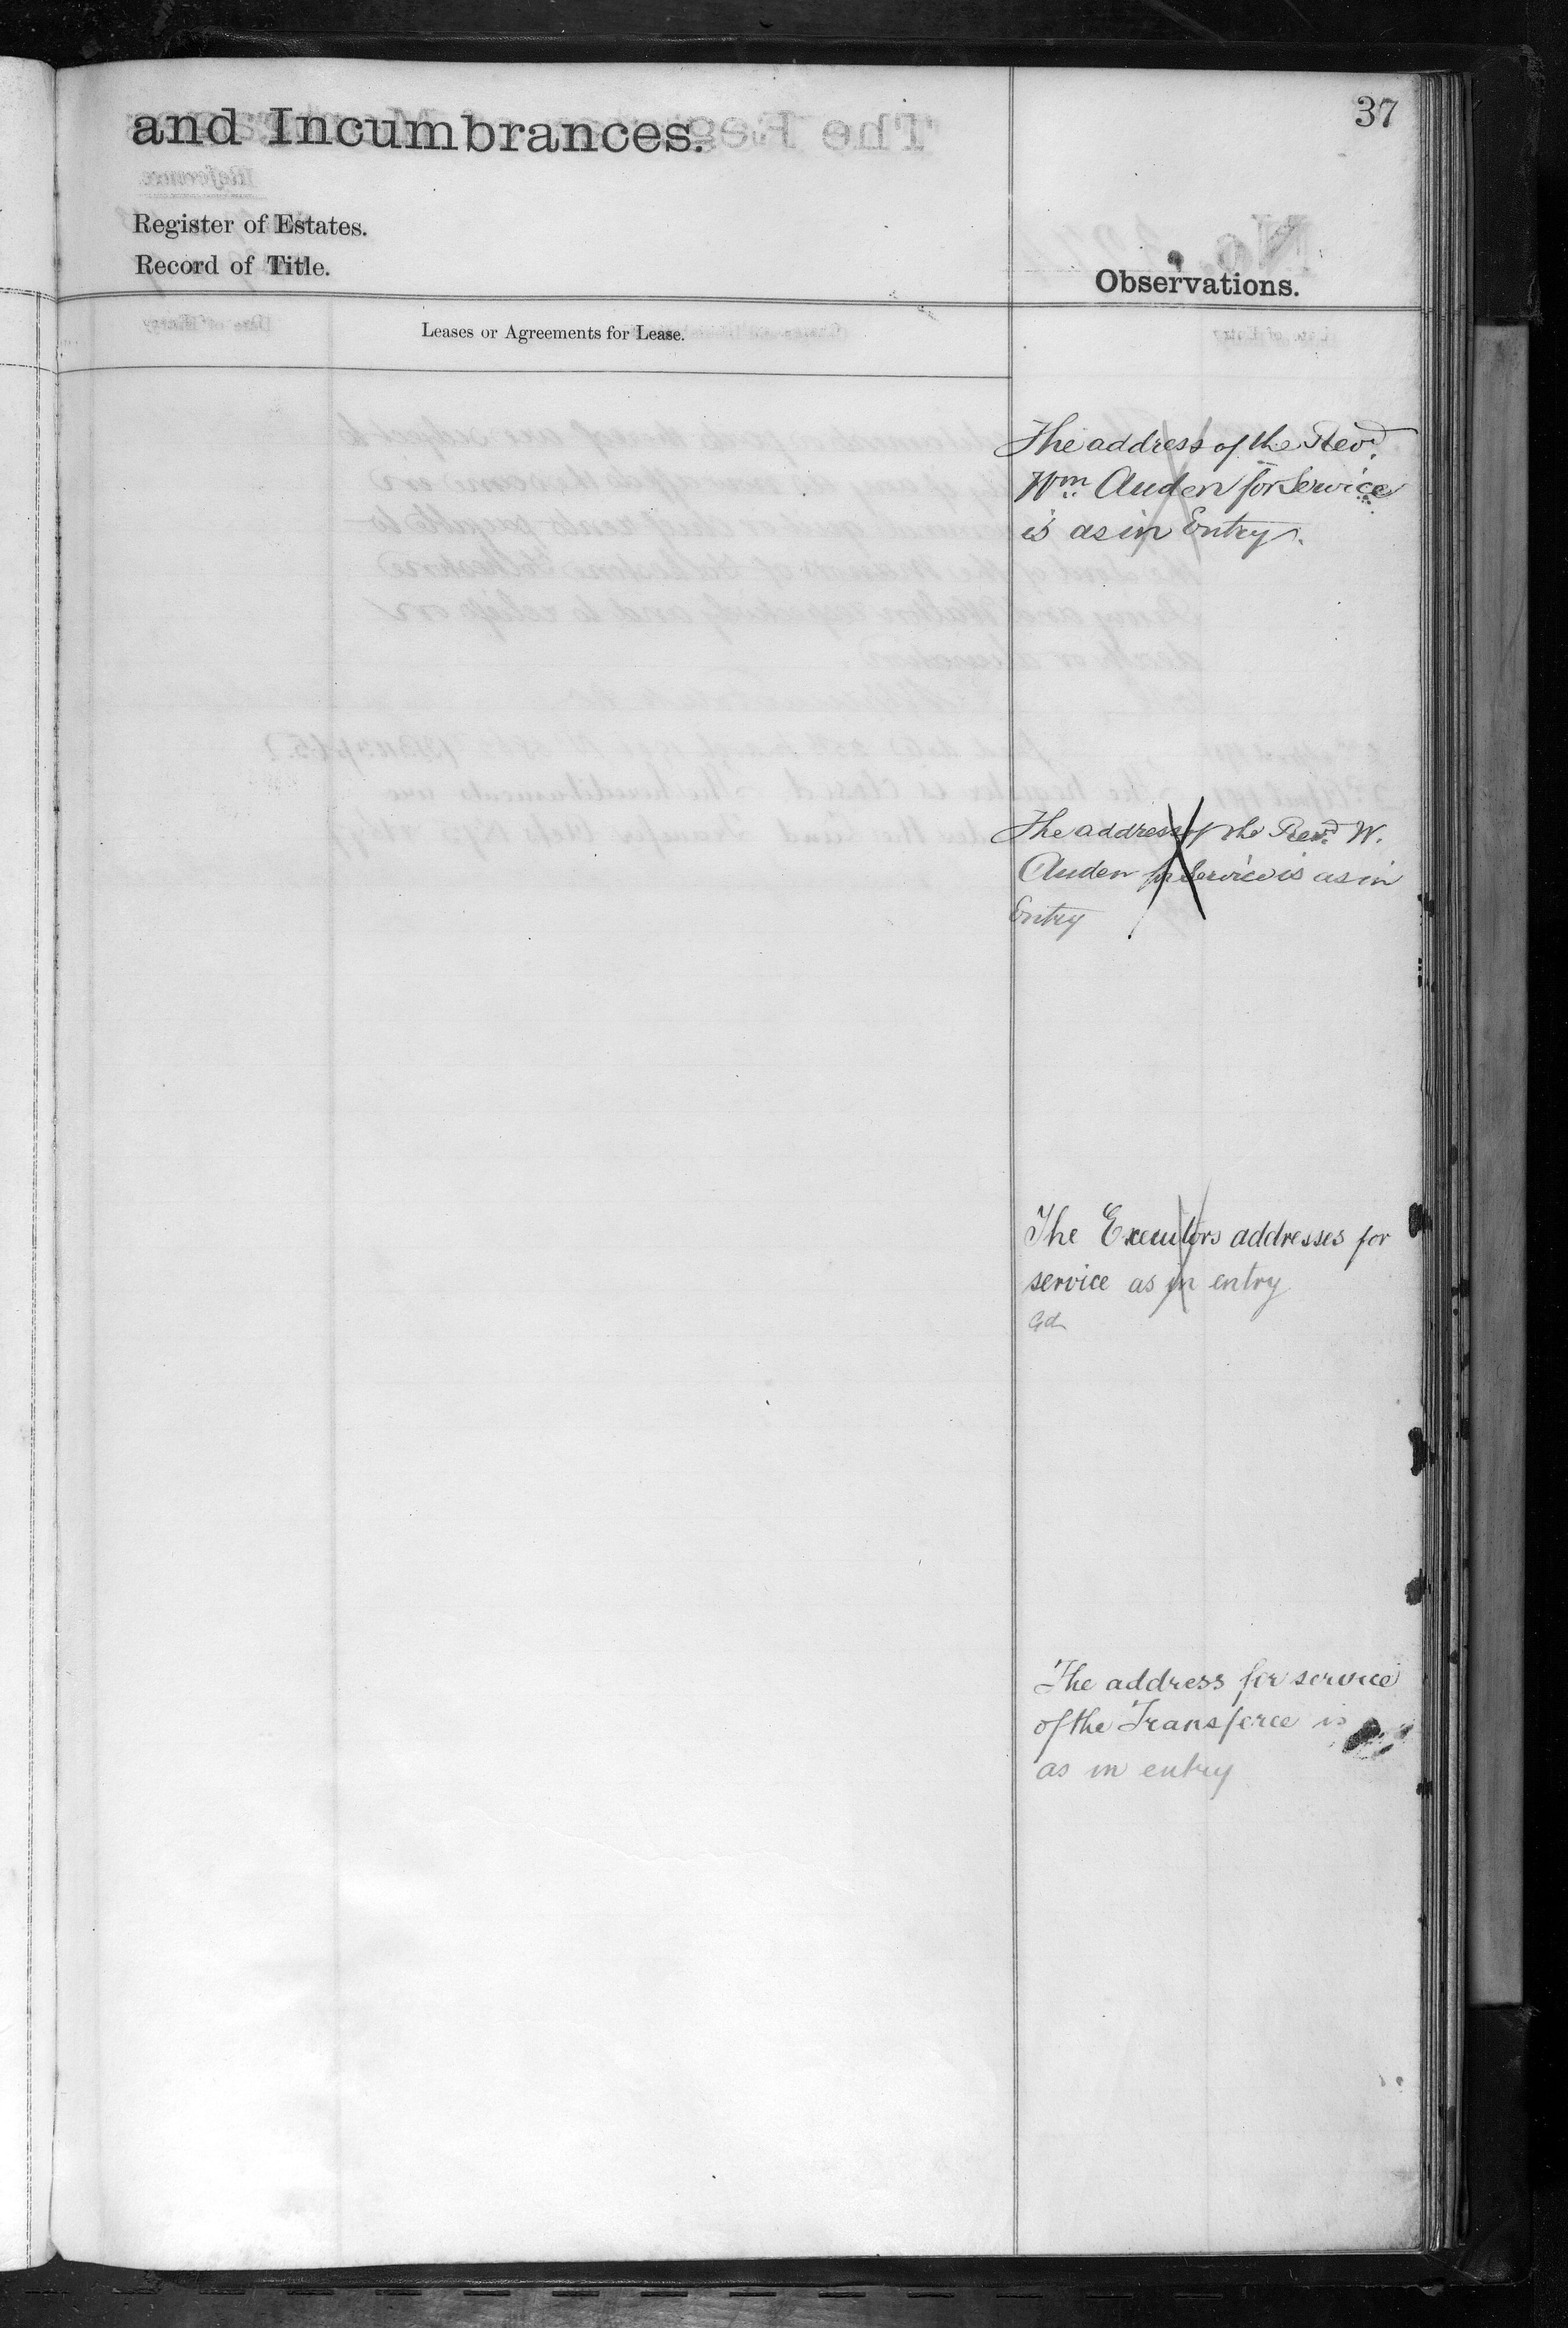 37
and Incumbrances.
Register of Estates.
Record of Title.
Observations.
Leases or Agreements for Lease.
The address of the Revd.
Wm. Auden for Service
is as in Entry.
The address of the Revd. W.
Auden for Service is as in
Entry
The Executors addresses for
service as in entry
The address for service
of the Transferee is
as in entry